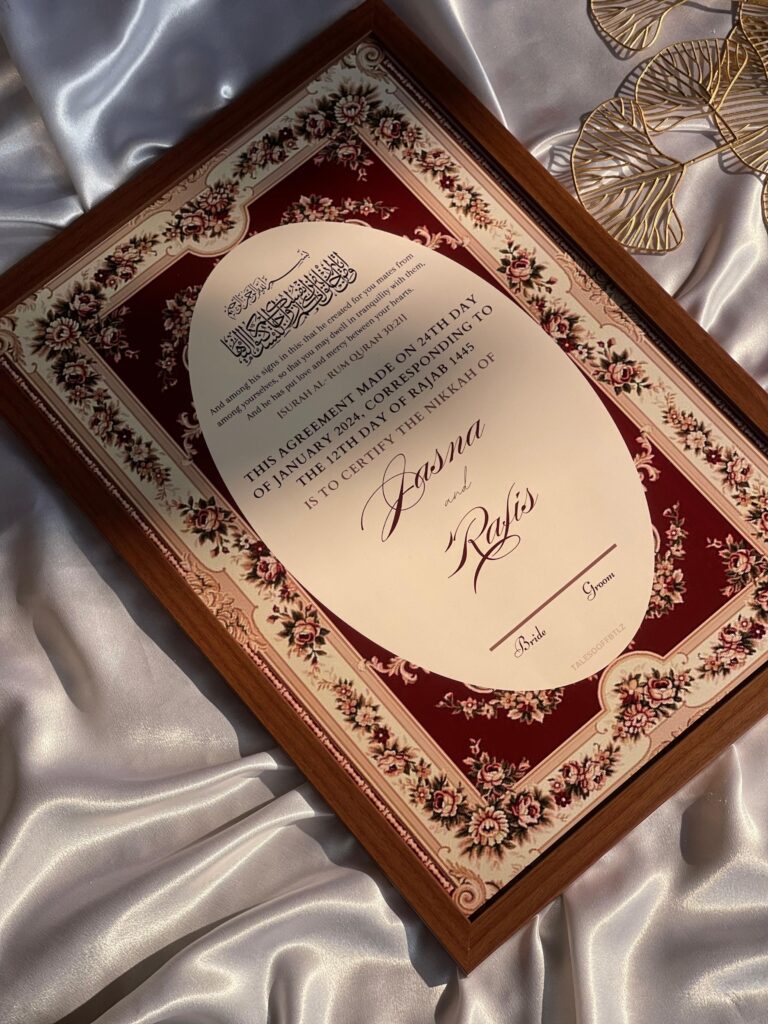 بسم الله الرحمن الرحيم
And among his signs in this: that he created for you mates from
among yourselves, so that you may dwell in tranquility with them,
And he has put love and mercy between your hearts.
[SURAH AL- RUM QURAN 30:21]
THIS AGREEMENT MADE ON 24TH DAY
OF JANUARY 2024, CORRESPONDING TO
THE 12TH DAY OF RAJAB 1445
IS TO CERTIFY THE NIKKAH OF
Jasna
and
Rafis
Bride Groom
TALESOOFFBTLZ